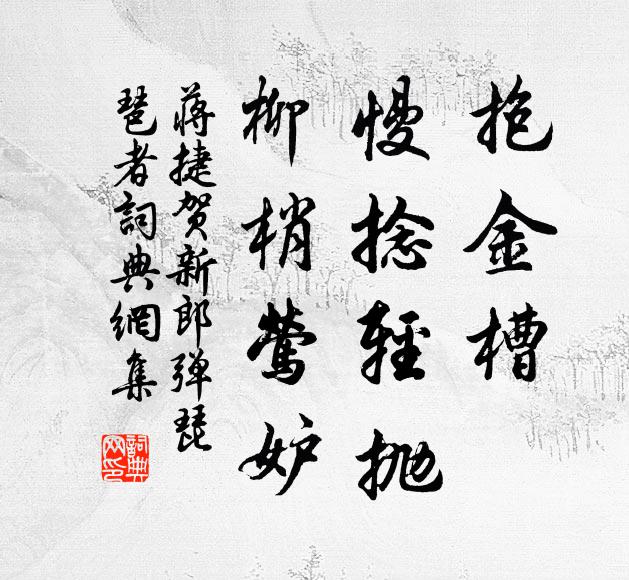 抱金槽
慢捻轻抛
柳梢莺妒
蒋捷贺新郎弹琵
琶者詞典網集
詞典网印